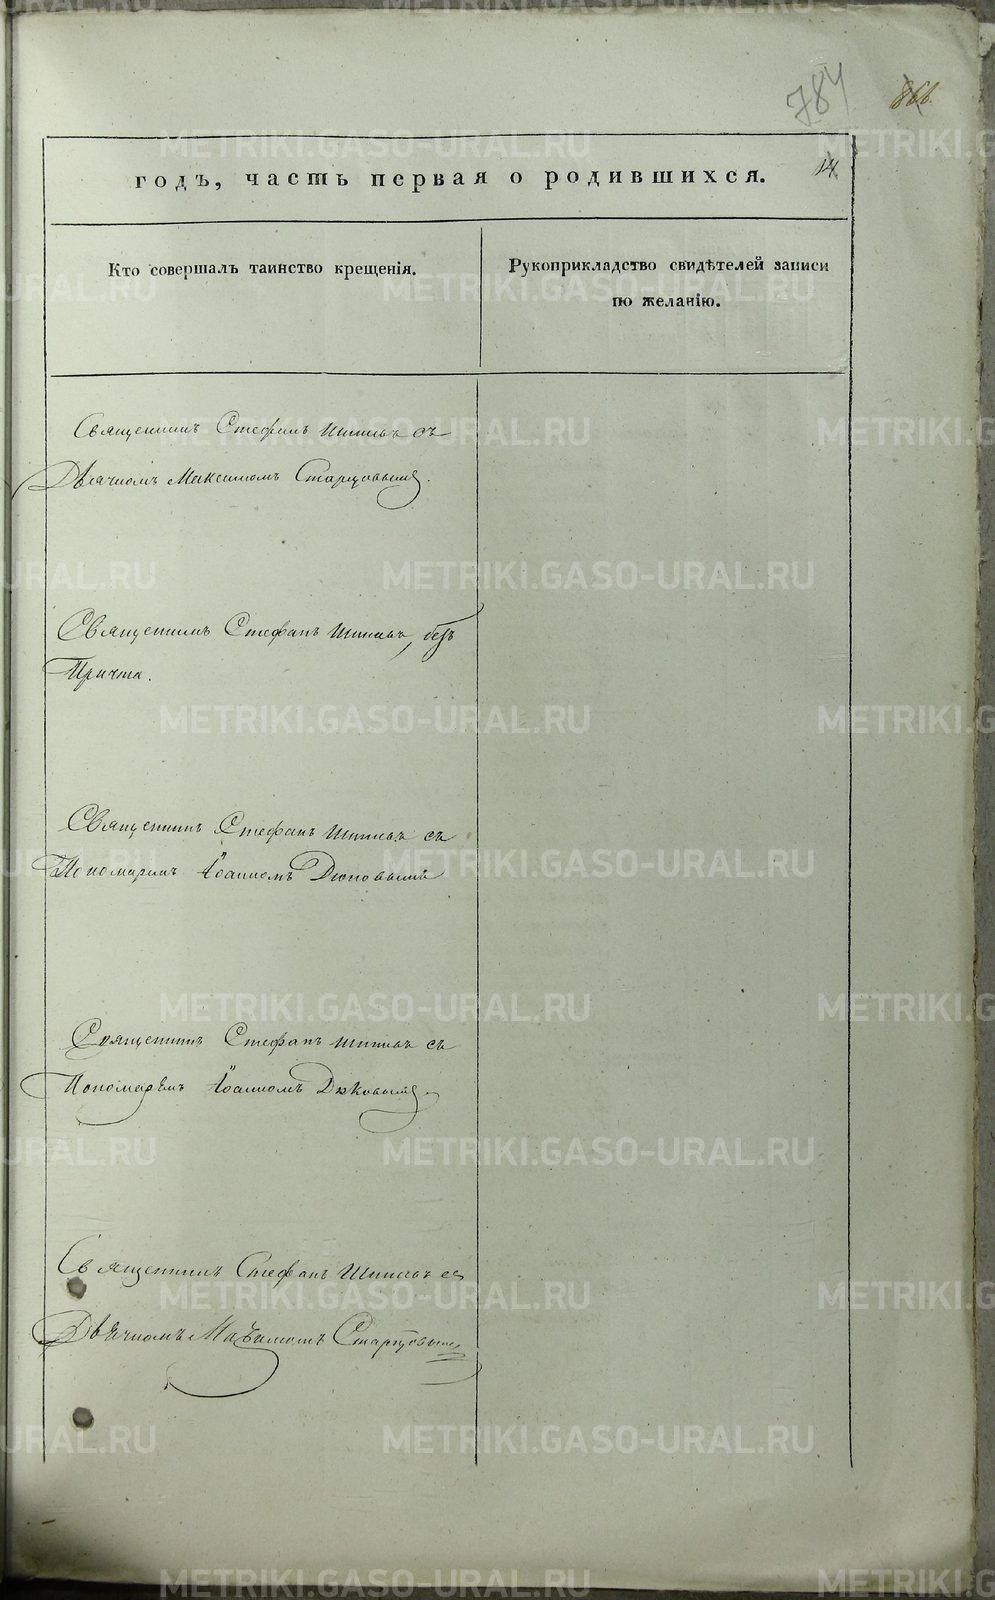 784
866.
14
годъ, часть первая о родившихся.
Кто совершалъ таинство крещенія.
Рукоприкладство свидѣтелей записи
по желанію.
Священникъ Стефанъ съ
Дьячкомъ Максимомъ Старцовымъ.
Священникъ Стефанъ безъ
Причта.
Священникъ Стефанъ съ
Пономаремъ Іоанномъ
Священникъ Стефанъ съ
Пономарёмъ Іоанномъ
Священникъ Стефанъ съ
Дьячкомъ Максимомъ Старцовымъ
METRIKI.GASO-URAL.RU